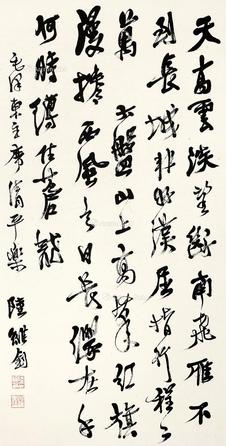 天高雲淡望斷南飛雁不
到長城非好漢屈指行程二
萬六盤山上高峯紅旗
漫捲西風今日長纓在手
何時縛住蒼龍
毛澤東主席清平樂 陸維釗